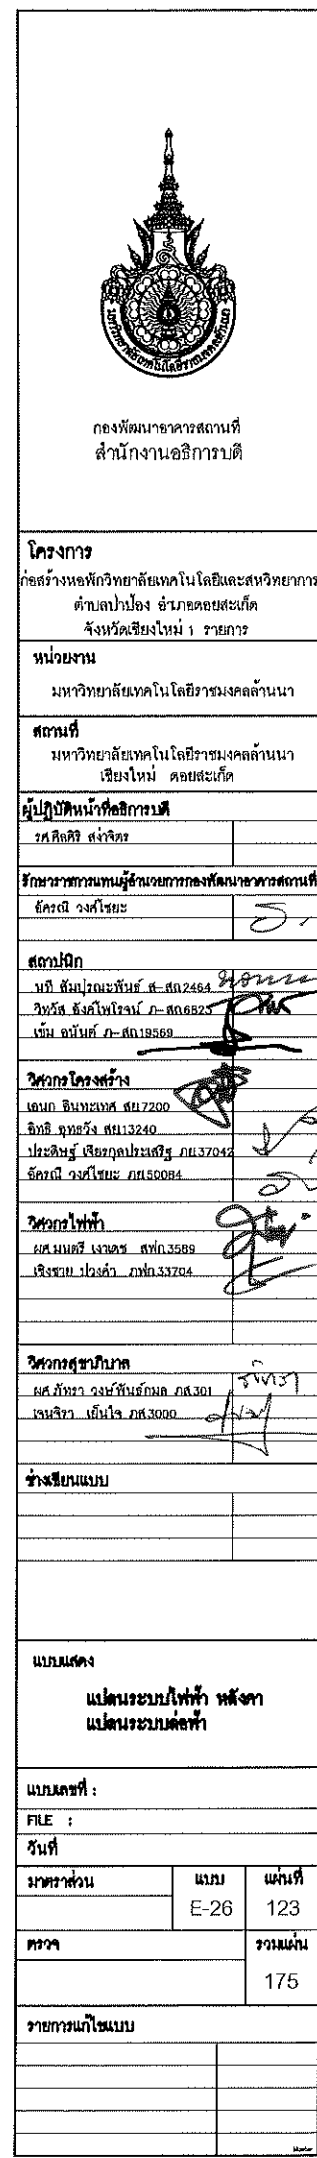 มหาวิทยาลัยเทคโนโลยีราชมงคลล้านนา
กองพัฒนาอาคารสถานที่
สำนักงานอธิการบดี
โครงการ
ก่อสร้างหอพักวิทยาลัยเทคโนโลยีและสหวิทยาการ
ตำบลป่าป้อง อำเภอดอยสะเก็ด
จังหวัดเชียงใหม่ 1 รายการ
หน่วยงาน
มหาวิทยาลัยเทคโนโลยีราชมงคลล้านนา
สถานที่
มหาวิทยาลัยเทคโนโลยีราชมงคลล้านนา
เชียงใหม่ ดอยสะเก็ด
ผู้ปฏิบัติหน้าที่อธิการบดี
รศ.ศีลศิริ สง่าจิตร
รักษาราชการแทนผู้อำนวยการกองพัฒนาอาคารสถานที่
อัครณี วงศ์ไชยะ
สถาปนิก
นที สัมปุรณะพันธ์ ส-สถ2464
วิทวัส องค์ไพโรจน์ ภ-สถ6823
เข้ม อนันต์ ภ-สถ19569
วิศวกรโครงสร้าง
เอนก อินทะเทศ สย7200
อิทธิ อุทธวัง สย13240
ประดิษฐ์ เจียรกุลประเสริฐ ภย37042
อัครณี วงศ์ไชยะ ภย50084
วิศวกรไฟฟ้า
ผศ.มนตรี เงาเดช สฟก.3589
เชิงชาย ปวงคำ ภฟก.33704
วิศวกรสุขาภิบาล
ผศ.ภัทรา วงษ์พันธ์กมล ภส.301
เจนจิรา เย็นใจ ภส.3000
ช่างเขียนแบบ
แบบแสดง
แปลนระบบไฟฟ้า หลังคา
แปลนระบบล่อฟ้า
แบบเลขที่ :
FILE :
วันที่
มาตราส่วน แบบ แผ่นที่
E-26 123
ตรวจ รวมแผ่น
175
รายการแก้ไขแบบ